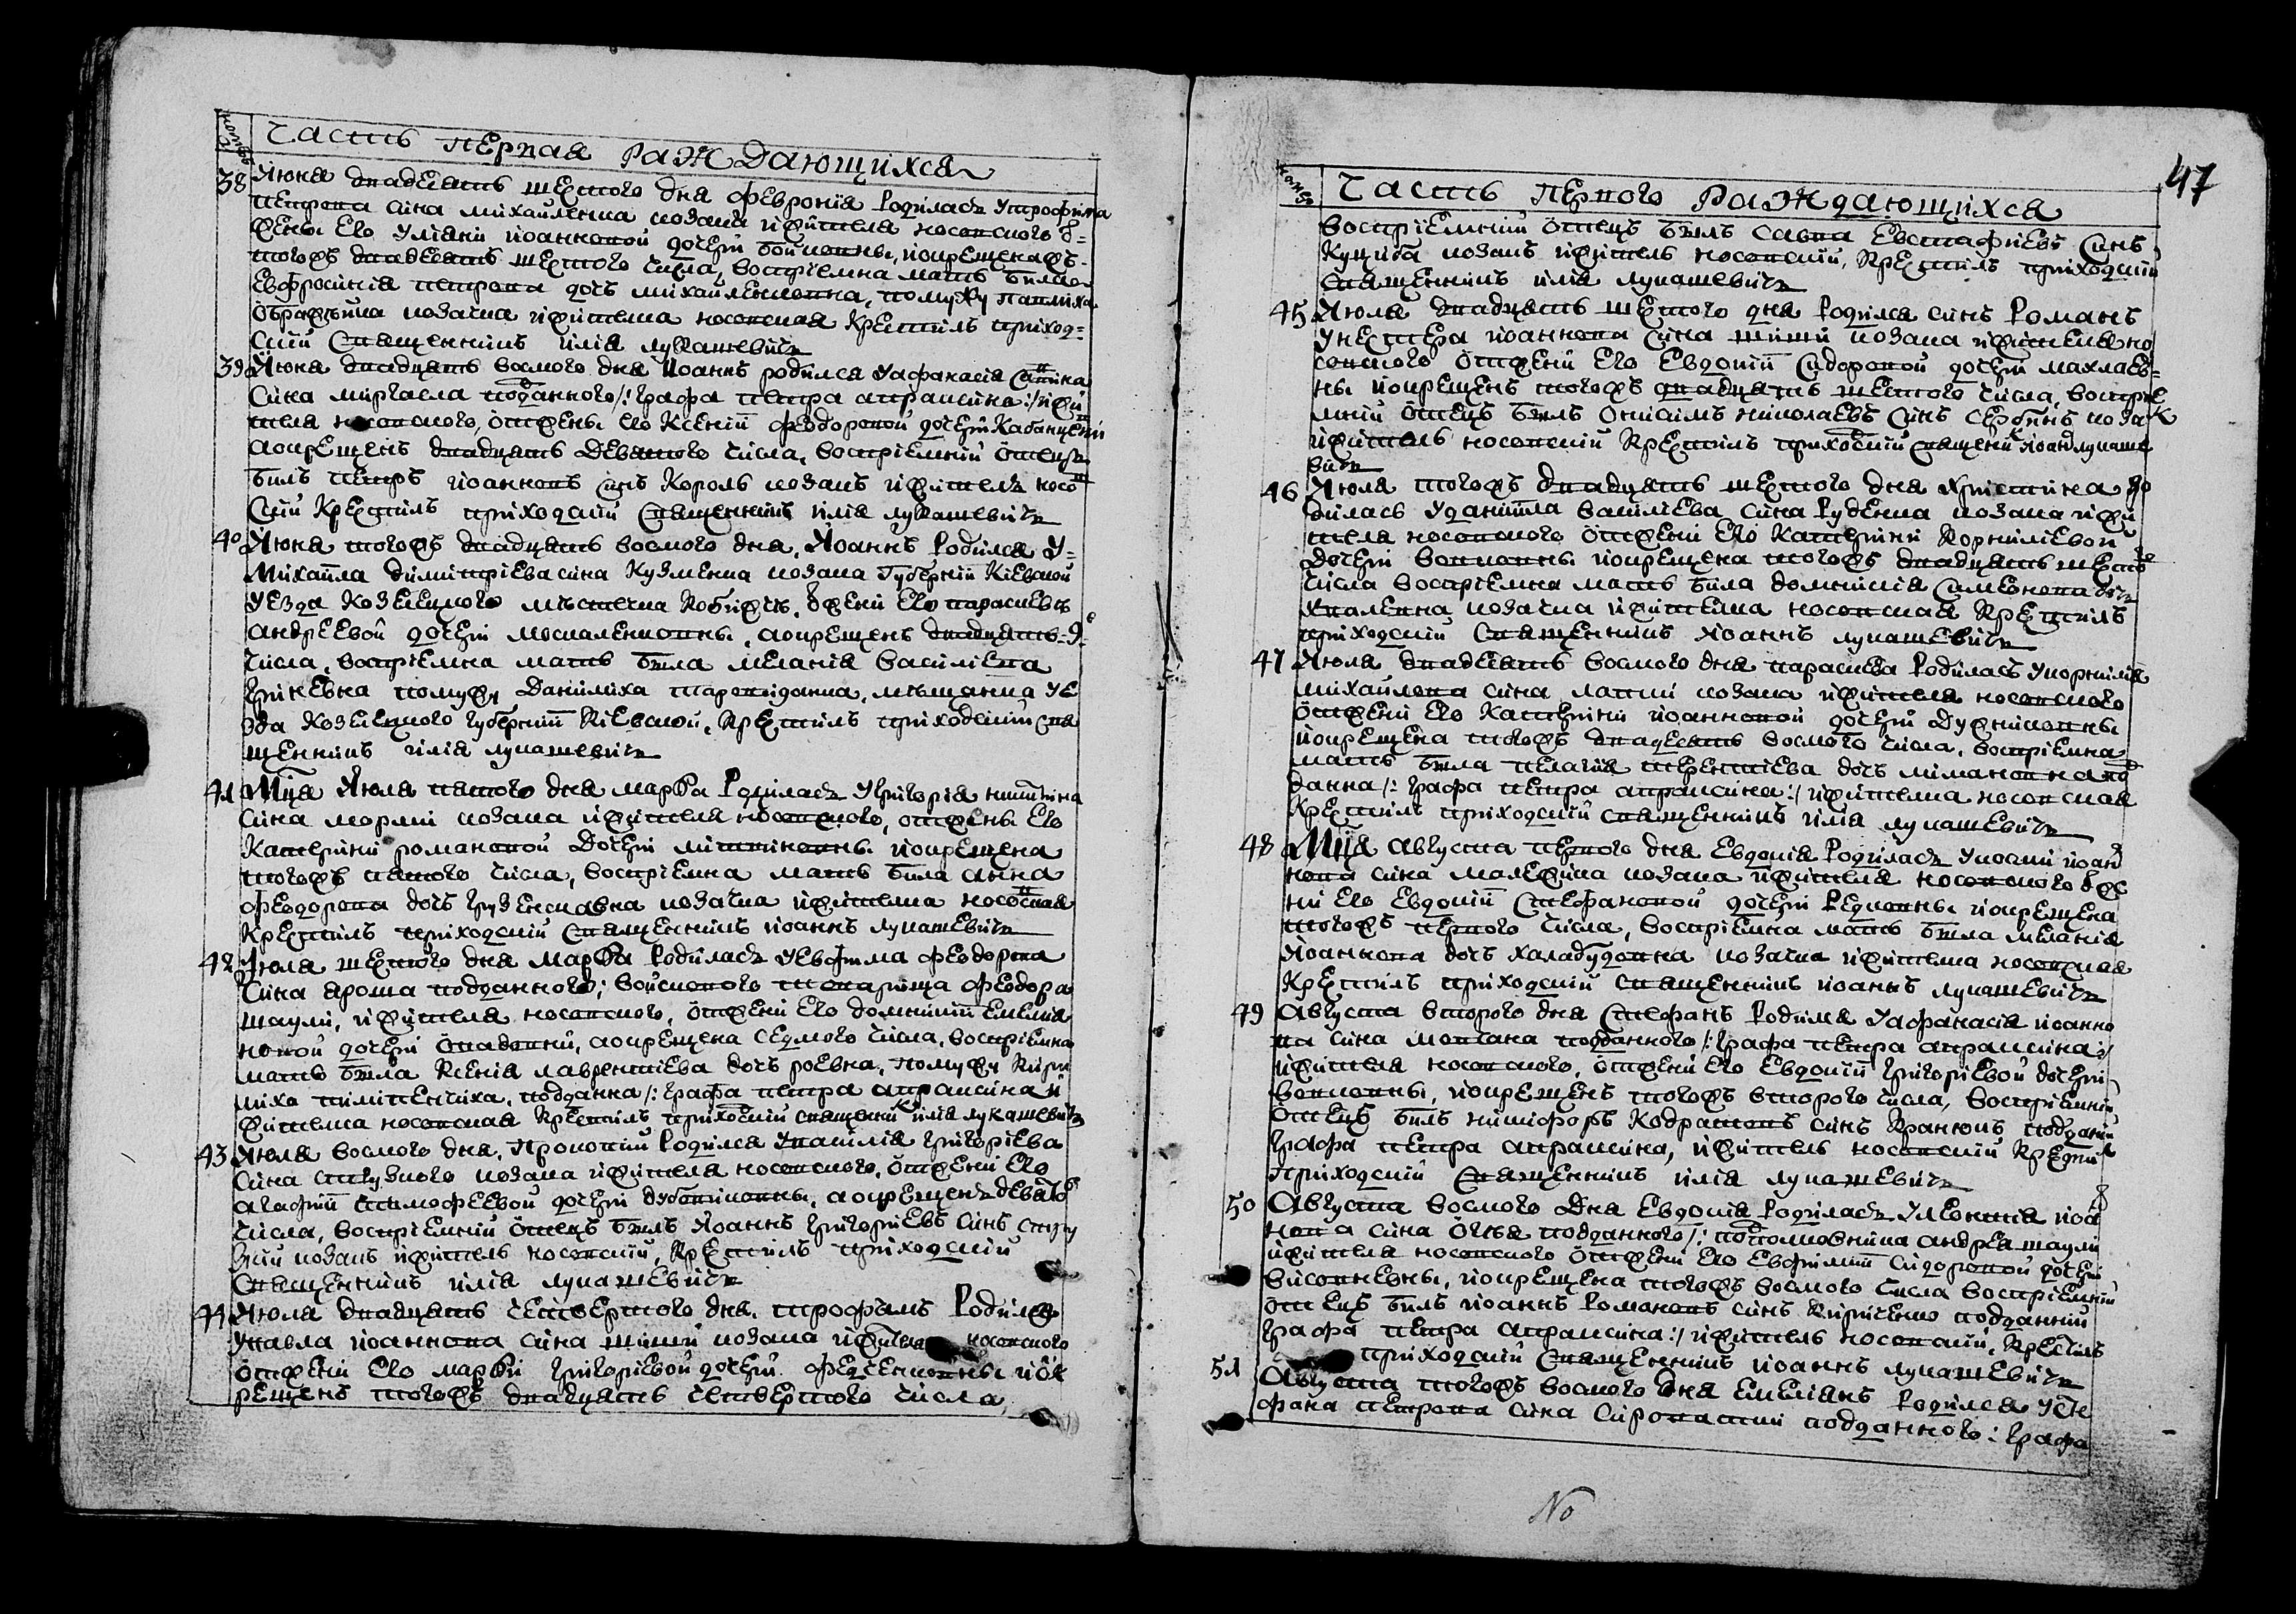 Часть первая раждающихся
38 Июня двадесять шестого дня Феврония родилась у Трофима
Петрова сина Михайленка козака жителя носовского з
жены его Улиани Иоанновой дочери, и окрещена
тогожъ двадесять шестого числа, восприемна мать била
Евфросиния Петрова дочь Михайленковна, по мужу
козачка жителка носовская крестилъ приход=
ский священникъ Илия Лукашевичъ
39 Июня двадцать восмого дня Иоаннъ родился у Афанасия
сина подданного /: графа Петра Апраксина :/ жи
теля носовского, отжены его Ксении Федоровой дочери
а окрещенъ двадцать девятого числа, восприемний отецъ
билъ Петръ Иоанновъ синъ Король козакъ житель носов
ский крестилъ приходский священникъ Илия Лукашевичъ
40 Июня тогожъ двадцать восмого дня, Иоаннъ родился у=
Михаила Димитриева сина Кузменка козака губернии Киевской
уезда Козелецкого местечка Кобижчъ, зжени его Параскевы
Андреевой дочери Москаленковны, а окрещен двадцать=9=
числа, восприемна мать била Мелания Василиева
Гриневна по мужу Данилиха, мещанка уе
зда Козелецкого губернии Киевской, крестилъ приходский свя
щенникъ Илия Лукашевичъ
41 Мца Июля пятого дня Марфа родилась у Григория Никитина
сина козака жителя носовского, отжены его
Катерини Романовой дочери и окрещена
тогожъ пятого числа, восприемна мать била Анна
Феодорова дочь козачка жителка носовская
крестилъ приходский священникъ Иоаннъ Лукашевичъ
42 Июля шестого дня Марфа родилась у Евфима Феодорова
сина Яроша подданного; войскового товарища Феодора
Шаули, жителя носовского, отжени его Домникии Емелиа
новой дочери, а окрещена седмого числа, восприемна
мать била Ксения Лаврентиева дочь, по мужу
подданка /: графа Петра Апраксина и
жителка носовская крестилъ приходский священникъ Илия Лукашевичъ
43 Июля восмого дня, Прокопий родился у Василия Григориева
сина козака жителя носовского, отжени его
Агафии Тимофеевой дочери, а окрещенъ девятого
числа, восприемний отецъ билъ Иоаннъ Григориевъ синъ
козакъ житель носовский, крестилъ приходский
священникъ Илия Лукашевичъ
44 Июля двадцать четвертого дня, Трофимъ родился
у Павла Иоаннова сина козака жителя носовского
отжени его Марфи Григориевой дочери Федченковны и ок
рещенъ тогожъ двадцать четвертого числа,
47
Часть первого раждающихся
восприемний отецъ билъ Савва Евстафиевъ синъ
козакъ житель носовский, крестилъ приходский
священникъ Илия Лукашевичъ
45 Июля двадцать шестого дня родился синъ Романъ
у Нестера Иоаннова сина козака жителя но
совского отжени его Евдокии Сидоровой дочери
и окрещенъ тогожъ двадцать шестого числа, восприе
мний отецъ билъ Онисимъ Николаевъ синъ Сербинъ козак
житель носовский крестилъ приходский священникъ Иоанъ Лукаше
вичъ
46 Июля тогожъ двадцать шестого дня Христина ро
дилась у Даниила Василиева сина Руденка козака жи
теля носовского отжени его Катерини Корнилиевой
дочери и окрещена тогожъ двадцать шестого
числа восприемна мать била Домникия Симеонова дочь
козачка жителка носовская крестилъ
приходский священникъ Иоаннъ Лукашевичъ
47 Июля двадесять восмого дня Параскева родилась у Корнилия
Михайлова сина козака жителя носовского
отжени его Катерини Иоанновой дочери
и окрещена тогожъ двадесять восмого числа, восприемна
мать била Пелагия Терентиева дочь под
данка /: графа Петра Апраксина :/ жителка носовская
крестилъ приходский священникъ Илия Лукашевичъ
48 Мца Августа первого дня Евдокия родилась Иоан
нова сина козака жителя носовского з же
ни его Евдокии Стефановой дочери и окрещена
тогожъ первого числа, восприемна мать била Мелания
Иоаннова дочь козачка жителка носовская
крестилъ приходский священникъ Иоаннъ Лукашевичъ
49 Августа второго дня Стефанъ родился у Афанасия Иоанно
ва сина подданного /: графа Петра Апраксина :/
жителя носовского, отжени его Евдокии Григориевой дочери
и окрещенъ тогожъ второго числа, восприемний
отецъ билъ Никифоръ Кодратовъ синъ подданий
графа Петра Апраксина, житель носовский крестил
приходский священникъ Илия Лукашевичъ
50 Августа восмого дня Евдокия родилась у Леонтия Иоа
нова сина подданного /: полковника Андрея Шаули
жителя носовского отжени его Евфимии Сидоровой дочери
и окрещена тогожъ восмого числа восприемний
отецъ билъ Иоаннъ Романовъ синъ Кириченко подданний
графа Петра Апраксина :/ житель носовский, крестилъ
приходский священникъ Иоаннъ Лукашевичъ
51 Августа тогожъ восмого дня Емелианъ родился у Сте
фана Петрова сина подданного : графа
No